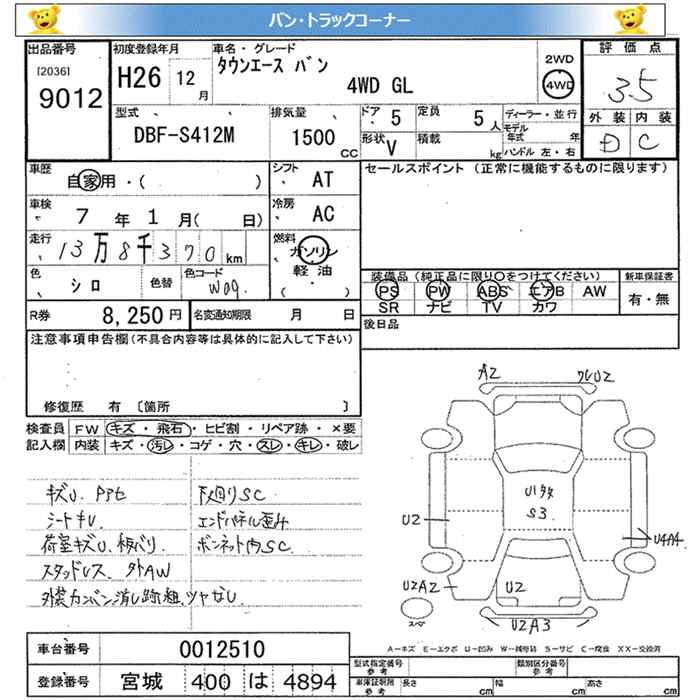 バン・トラックコーナー
出品番号 初度登録年月 車名・グレード 評価点
[2036] 9012 H26 12月 タウンエース バン 4WD GL 2WD 4WD 3.5
外装 内装
D C
型式 排気量 ドア 5 定員 5人 ディーラー・並行
DBF-S412M 1500CC 形状 V 積載 kg モデル年式 年
ハンドル 左・右
車歴 自家用・( ) シフト AT セールスポイント (正常に機能するものに限ります)
車検 7年 1月( 日) 冷房 AC
走行 13万8千370km 燃料 ガソリン 軽油 ( ・ )
色 シロ 色替 色コード W09.
装備品(純正品に限り○をつけてください) 新車保証書
PS PW ABS エアB AW 有・無
SR ナビ TV カワ
R券 8,250円 名変通知期限 月 日 後日品
注意事項申告欄(不具合内容等は具体的に記入して下さい)
修復歴 有 〔箇所 〕
検査員 FW キズ・飛石・ヒビ割・リペア跡・×要
記入欄 内装 キズ・汚レ・コゲ・穴・スレ・キレ・破レ
キズU 下回りSC
シートキレ エンドパネル歪み
荷室キズU、板バリ ボンネット内SC
スタッドレス 外AW
外装カンバン消し跡、ツヤなし
A2 U2
U1
S3
U2 U4A4
U2A2 U2
スペア U2A3
A−キズ E−エクボ U−凹み W−補修跡 S−サビ C−腐食 XX−交換済
車台番号 0012510
登録番号 宮城 400 は 4894
型式指定番号 参考 類別区分番号 参考
車庫証明 参考 長さ cm 幅 cm 高さ cm